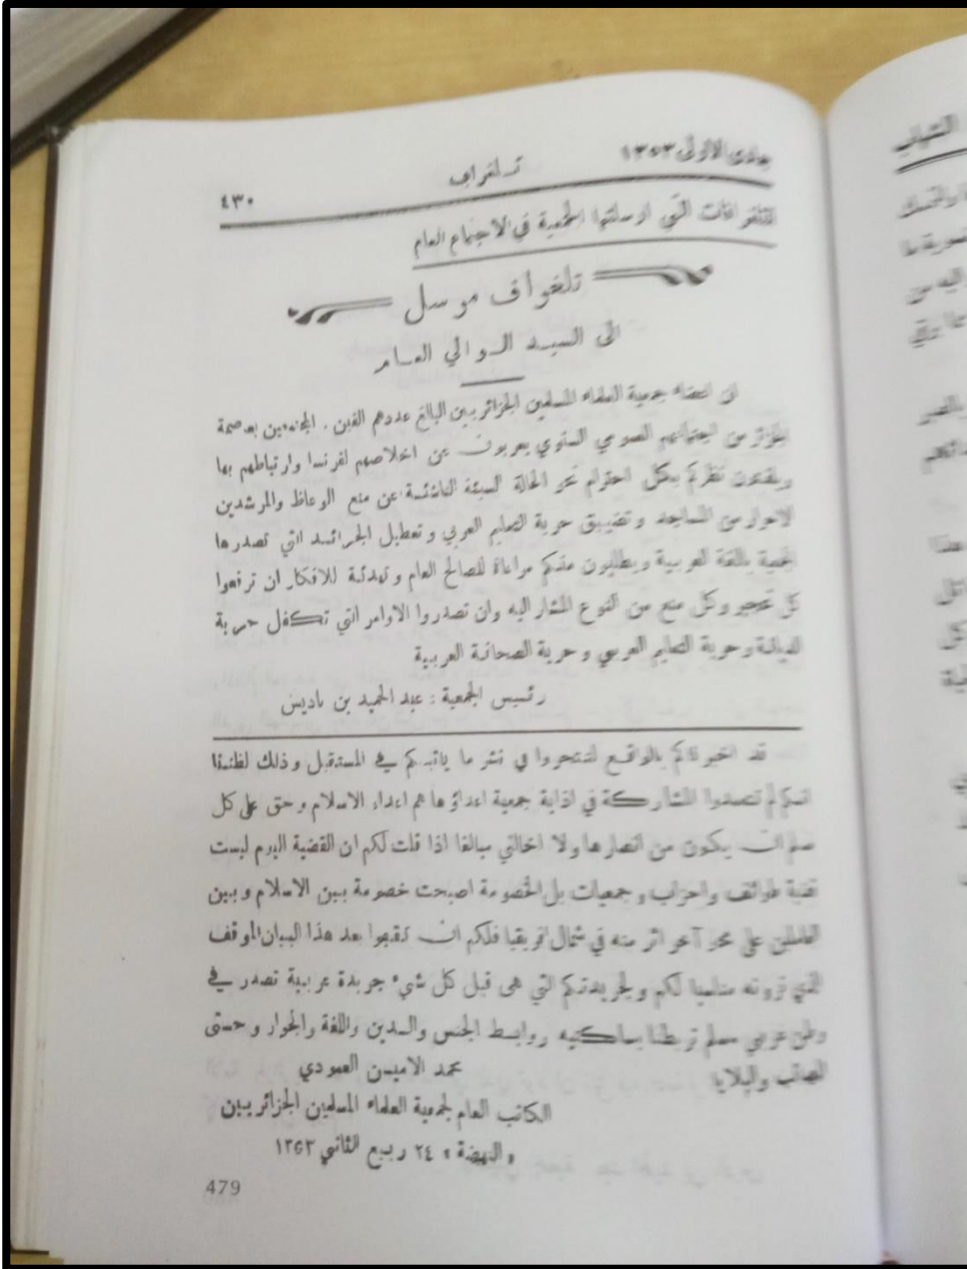 جمادى الاولى ١٣٥٣
تلغراف
٤٣٠
التلغرافات التي ارسلتها الجمعية في الاجتماع العام
تلغراف مرسل
الى السيد الوالي العام
ان اعضاء جمعية العلماء المسلمين الجزائريين البالغ عددهم الفين . المجتمعين بعاصمة
الجزائر من اجتماعهم العمومي السنوي يعربون عن اخلاصهم لفرنسا وارتباطهم بها
ويلفتون نظركم بكل احترام نحو الحالة السيئة الناشئة عن منع الوعاظ والمرشدين
الاحرار من المساجد وتضييق حرية التعليم العربي وتعطيل الجرائد التي تصدرها
الجمعية باللغة العربية ويطلبون منكم مراعاة للصالح العام وتهدئة للافكار ان ترفعوا
كل تحجير وكل منع من النوع المشار اليه وان تصدروا الاوامر التي تكفل حرية
الديانة وحرية التعليم العربي وحرية الصحافة العربية
رئيس الجمعية : عبد الحميد بن باديس
قد اخبرناكم بالواقع لتتحروا في نشر ما ياتيكم في المستقبل وذلك لظننا
انكم لم تتعمدوا المشاركة في اذاية جمعية اعداؤها هم اعداء الاسلام وحق على كل
مسلم ان يكون من انصارها ولا اخالني مبالغا اذا قلت لكم ان القضية اليوم ليست
قضية طوائف واحزاب وجمعيات بل الخصومة اصبحت خصومة بين الاسلام وبين
العاملين على محو آخر اثر منه في شمال افريقيا فلكم ان تقفوا بعد هذا البيان الموقف
الذي ترونه مناسبا لكم ولجريدتكم التي هي قبل كل شيء جريدة عربية تصدر في
وطن عربي مسلم تربطنا بساكنيه روابط الجنس والدين واللغة والجوار وحتى
المصائب والبلايا
محمد الامين العمودي
الكاتب العام لجمعية العلماء المسلمين الجزائريين
« النهضة » ٢٤ ربيع الثاني ١٣٥٣
479
الشهاب